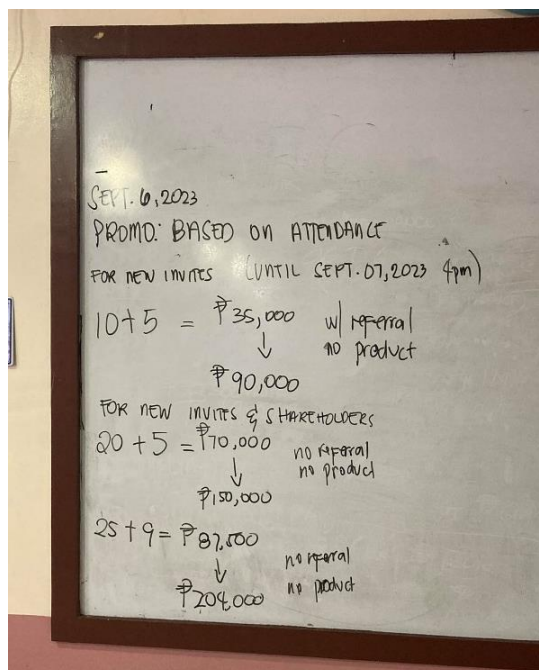 SEPT. 6, 2023
PROMO: BASED ON ATTENDANCE
FOR NEW INVITES (UNTIL SEPT. 07, 2023 4pm)
10+5 = ₱35,000 w/ referral
↓ no product
₱90,000
FOR NEW INVITES & SHAREHOLDERS
20 + 5 = ₱70,000 no referal
↓ no product
₱150,000
25 + 9 = ₱87,500
↓ no referal
₱204,000 no product